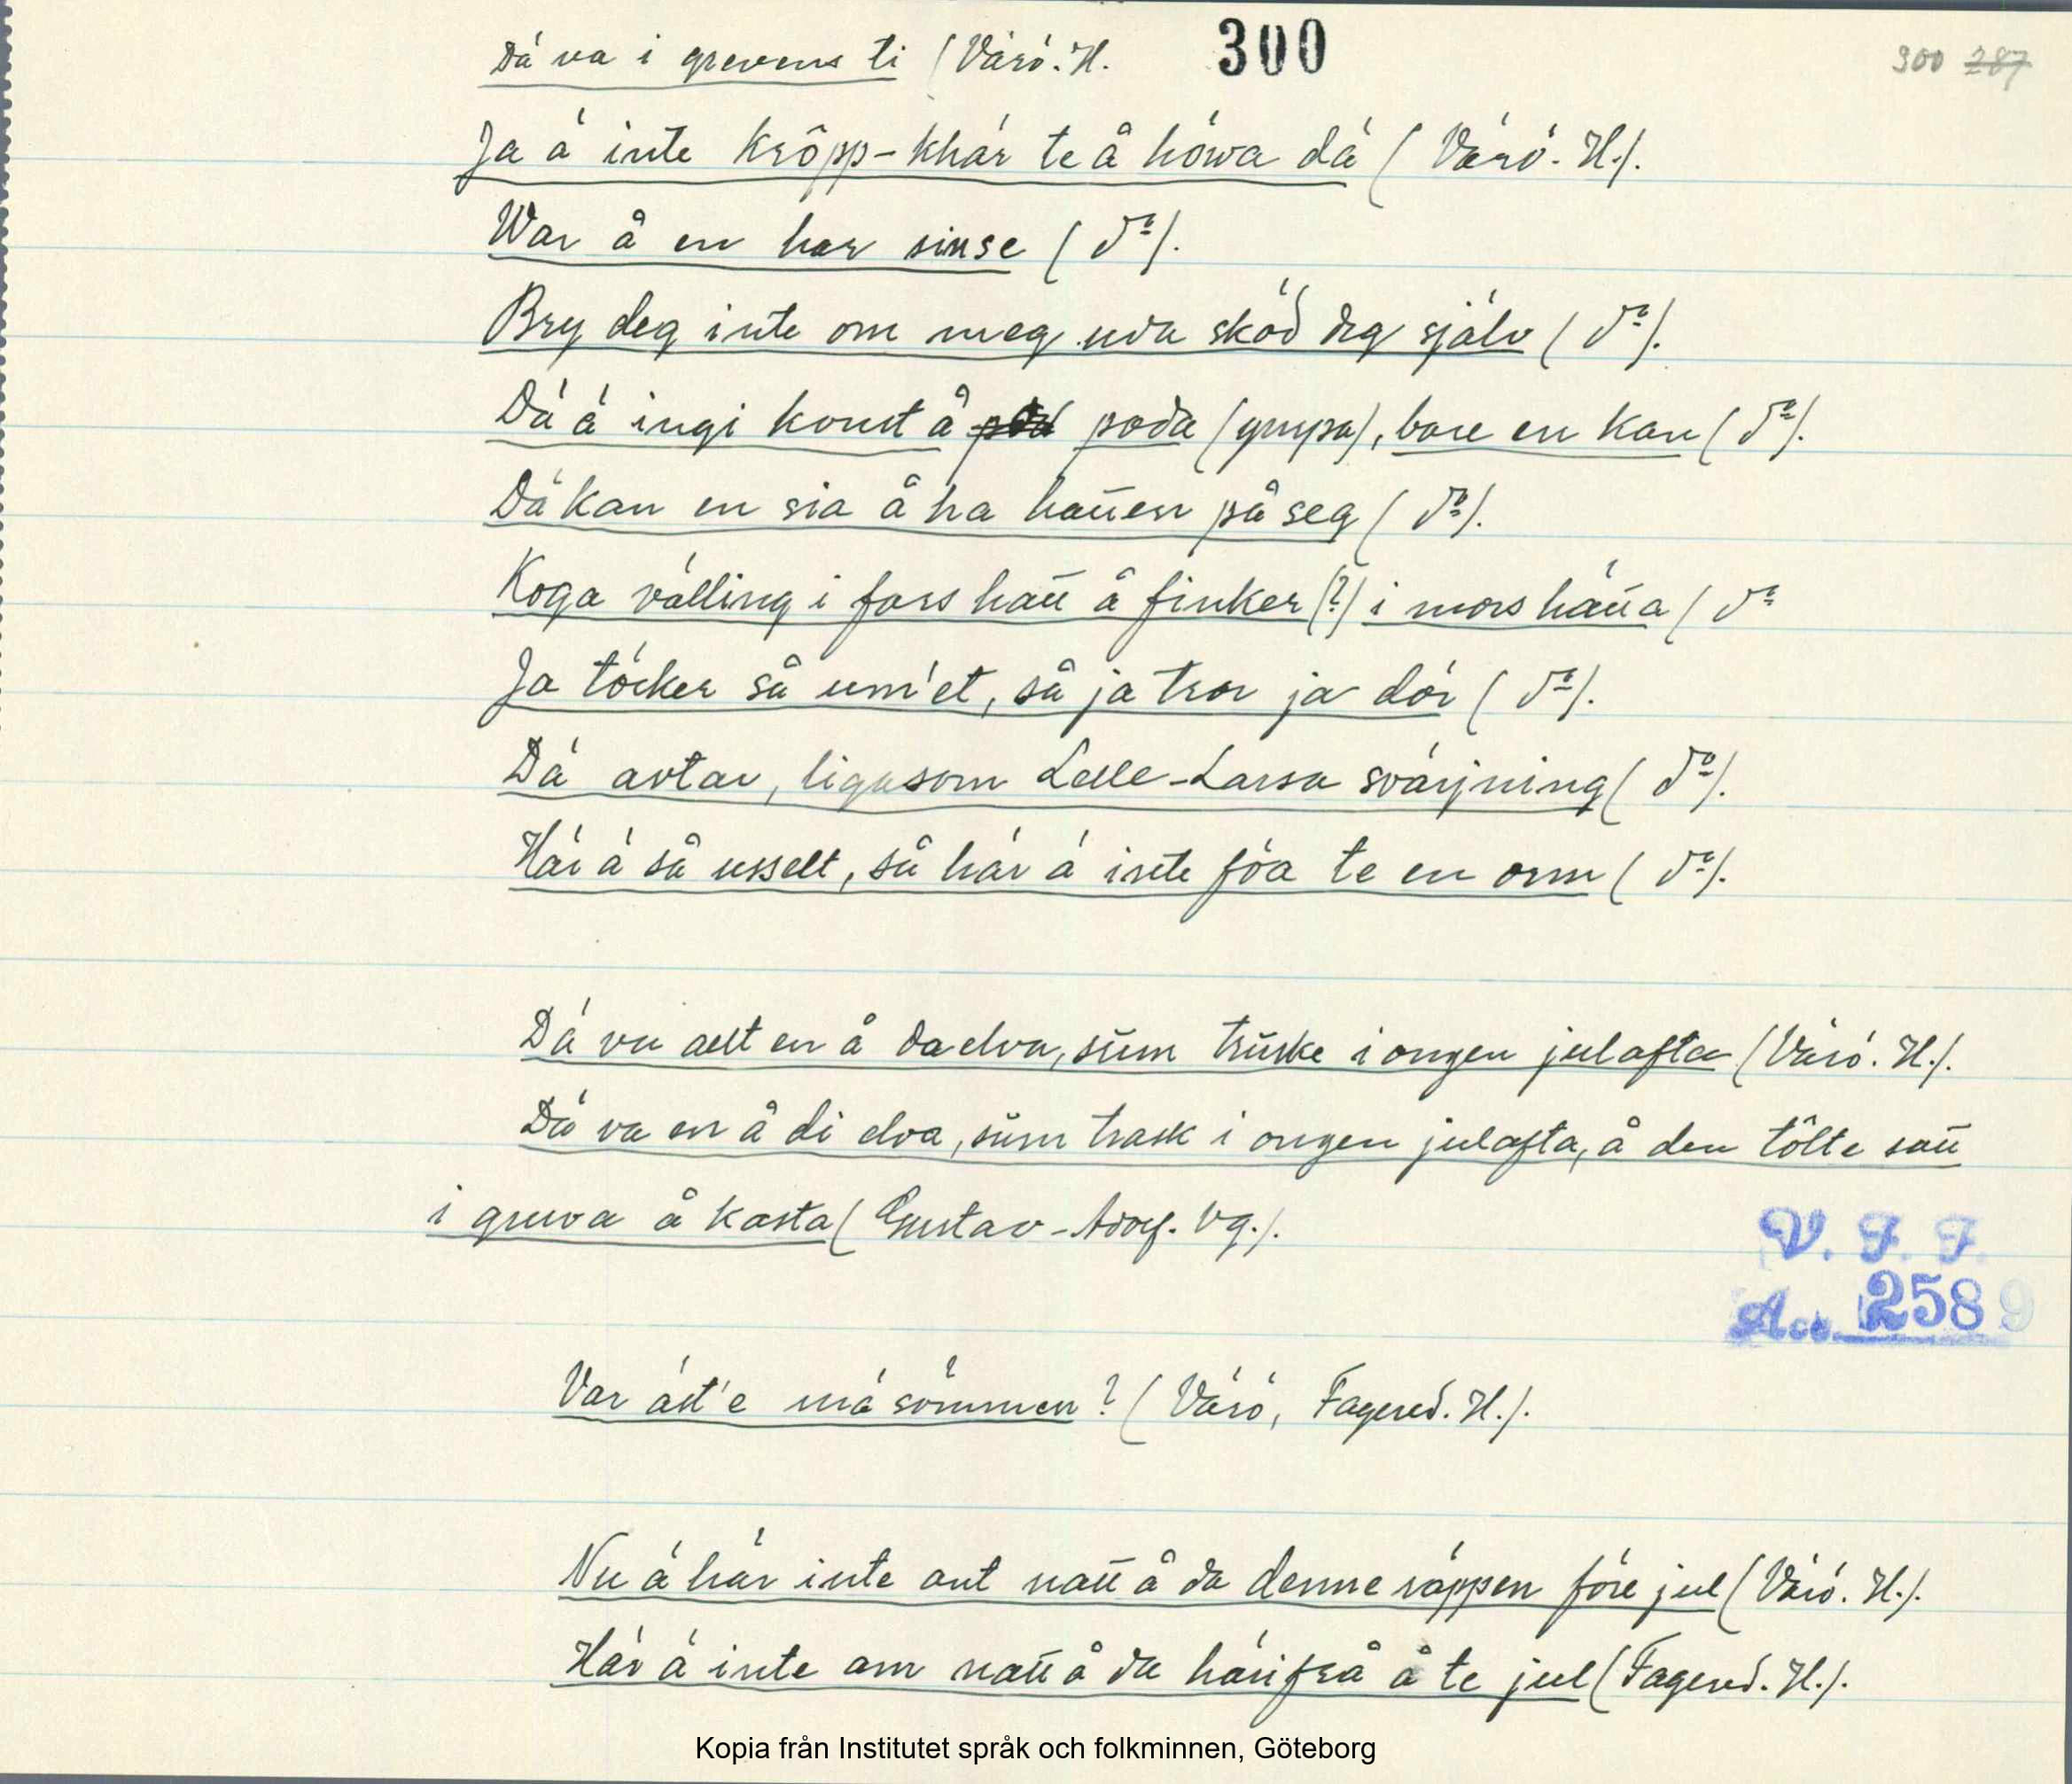 300
300 287
Dä va i grevens ti (Värö. H.
Ja ä inte krôpp-khär te å höwa dä (Värö. H.).
War å en har sinse (dº).
Bry deg inte om meg uda sköd deg själv (dº).
Dä ä ingi konst å poda (gnypa), bare en kan (dº).
Dä kan en sia å ha hañen på seg (dº).
Koga välling i fars hatt å finker (?) i mors häua (dº
Ja töcker så um'et, så ja tror ja dör (dº).
Dä avtar, ligasom Lelle-Larsa svärjning (dº).
Här ä så usselt, så här ä inte föa te en orm (dº).
Dä va allt en å da elva, sum truske i ongen julafta (Värö. H.).
Dä va en å di elva, sum trask i ongen julafta, å den tôlte satt
i gruva å kasta (Gustav-Adolf. Vg.).
V. F. F.
Acc. 2589
Var äst'e mä sömmen? (Värö, Fagered. H.).
Nu ä här inte ant natt å da denne räppen före jul (Värö. H.).
Här ä inte am natt å da härifrå å te jul (Fagered. H.).
Kopia från Institutet språk och folkminnen, Göteborg